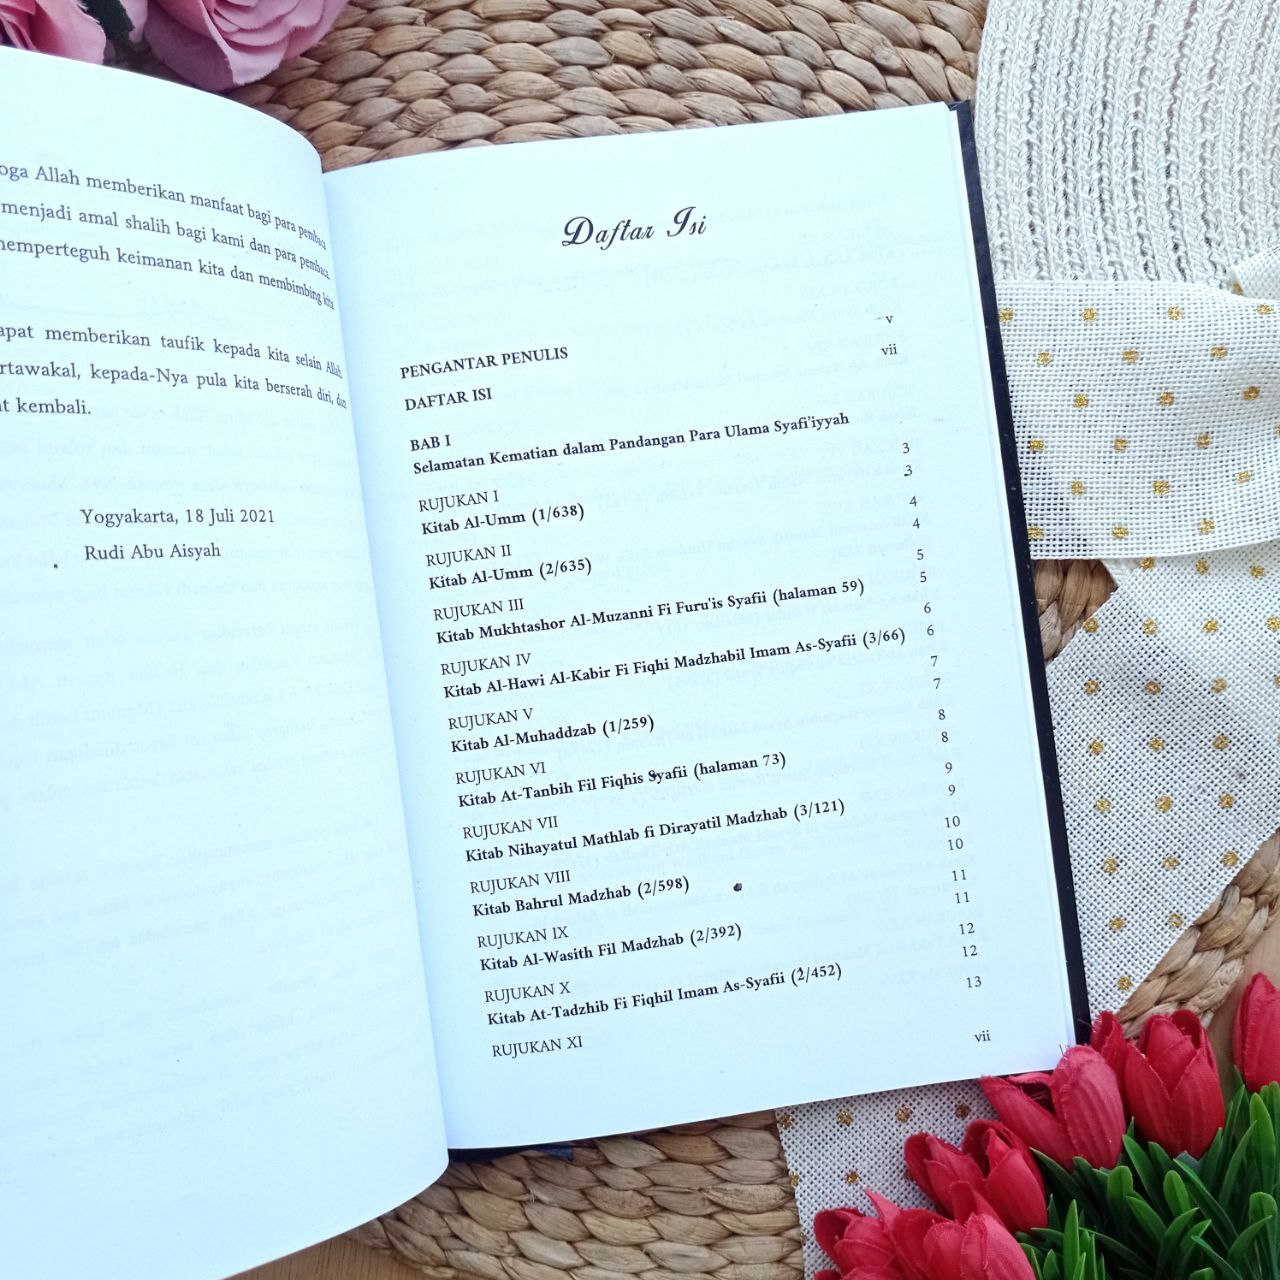 oga Allah memberikan manfaat bagi para pembaca
menjadi amal shalih bagi kami dan para pembaca.
memperteguh keimanan kita dan membimbing kita
apat memberikan taufik kepada kita selain Allah.
rtawakal, kepada-Nya pula kita berserah diri, dan
at kembali.
Yogyakarta, 18 Juli 2021
Rudi Abu Aisyah
Daftar Isi
PENGANTAR PENULIS v
DAFTAR ISI vii
BAB I
Selamatan Kematian dalam Pandangan Para Ulama Syafi'iyyah
RUJUKAN I 3
Kitab Al-Umm (1/638) 3
RUJUKAN II 4
Kitab Al-Umm (2/635) 4
RUJUKAN III 5
Kitab Mukhtashor Al-Muzanni Fi Furu'is Syafii (halaman 59) 5
RUJUKAN IV 6
Kitab Al-Hawi Al-Kabir Fi Fiqhi Madzhabil Imam As-Syafii (3/66) 6
RUJUKAN V 7
Kitab Al-Muhaddzab (1/259) 7
RUJUKAN VI 8
Kitab At-Tanbih Fil Fiqhis Syafii (halaman 73) 8
RUJUKAN VII 9
Kitab Nihayatul Mathlab fi Dirayatil Madzhab (3/121) 9
RUJUKAN VIII 10
Kitab Bahrul Madzhab (2/598) 10
RUJUKAN IX 11
Kitab Al-Wasith Fil Madzhab (2/392) 11
RUJUKAN X 12
Kitab At-Tadzhib Fi Fiqhil Imam As-Syafii (2/452) 12
RUJUKAN XI 13
vii